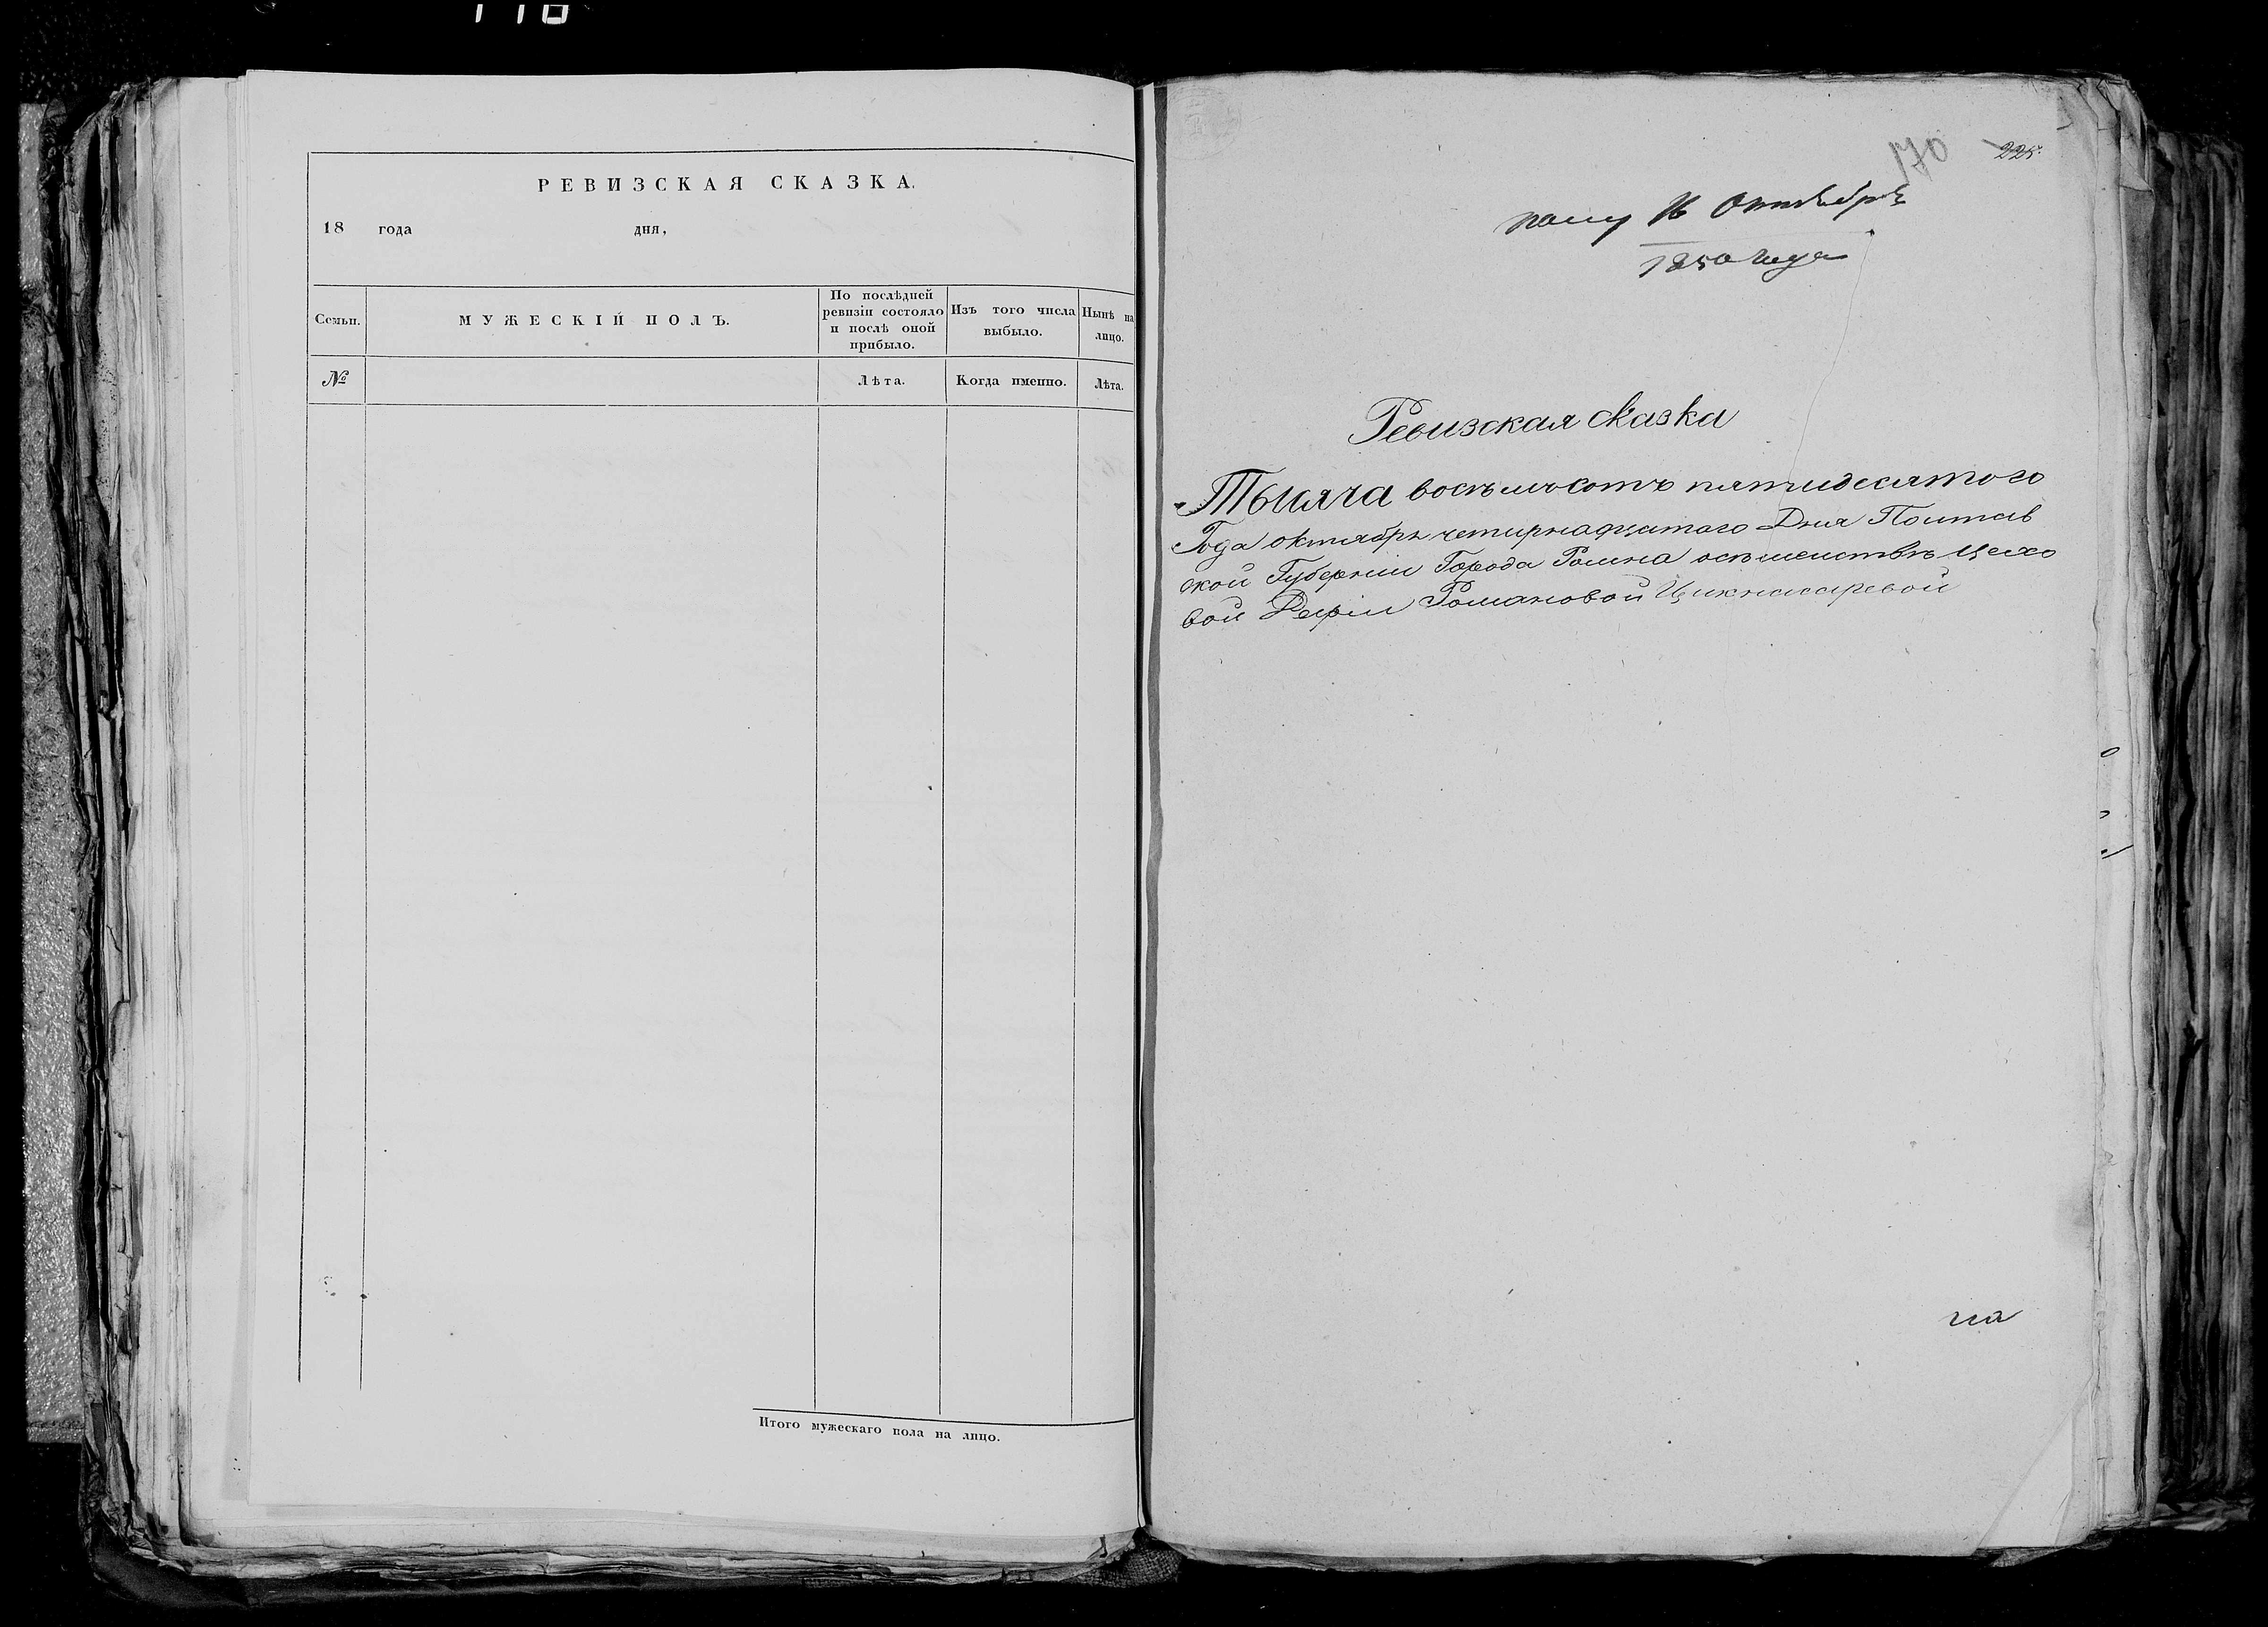 РЕВИЗСКАЯ СКАЗКА.
18 года дня,
Семьи.
МУЖЕСКІЙ ПОЛЪ.
По послѣдней
ревизіи состояло
и послѣ оной
прибыло.
Изъ того числа
выбыло.
Нынѣ на
лицо.
№
Лѣта.
Когда именно.
Лѣта.
Итого мужескаго пола на лицо.
170 225
16 Октября
1850 года
Ревизская сказка
Тысяча восъмъсотъ пятидесятого
Года октября четырнадцатого Дня Полтав
ской Губерніи Города Ромна осемействѣ цехо
вой Романовой